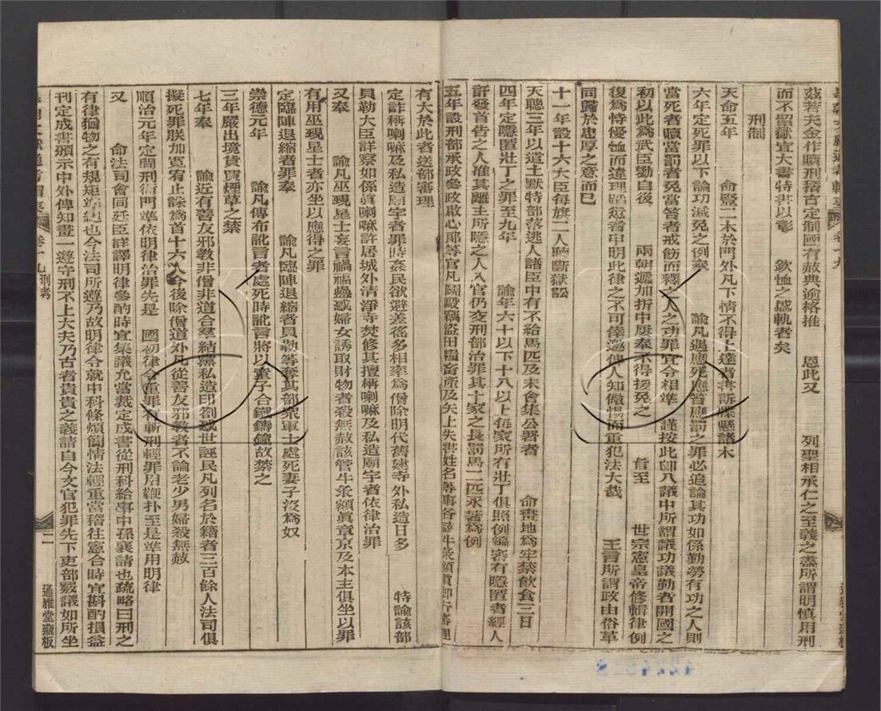 茲若夫金作贖刑稽古定制國有赦典逾格推　恩此又　列聖相承仁之至義之盡所謂明慎用刑
而不留獄宜大書特書以彰　欽恤之盛軌者矣
刑制
天命五年　命豎二木於門外凡下情不得上達者書訴牒懸諸木
六年定死罪以下論功減免之例奉　諭凡遇應死應笞應罰之罪必追論其功如係勤勞有功之人則
當死者贖當罰者免當笞者戒飭而釋之人之功罪宜令相準　謹按此卽八議中所謂議功議勤者開國之
初以此為武臣勸自後　兩朝遞加折中屢奉不得援免之　旨至　世宗憲皇帝修輯律例
復為恃優恤而違理蹈愆者申明此律之不可倖邀俾人知儆惕而重犯法大哉　王言所謂政由俗革
同歸於忠厚之意而已
十一年設十六大臣每旗二人聽斷獄訟
天聰三年以遣土默特部落逃人諸臣中有不給馬匹及未會集公署者　命畫地為牢禁飲食三日
四年定隱匿壯丁之罪至九年　諭年六十以下十八以上每家所有壯丁俱照例編審有隱匿者經人
訐發首告之人准其離主所隱之人入官仍交刑部治罪其十家之長罰馬二匹永著為例
五年設刑部承政參政啟心郎等官凡鬭毆竊盜田糧畜產及矢上失書姓名等事各該牛彔額真卽行審理
有大於此者送部審理
定詐稱喇嘛及私造廟宇者罪時姦民欲避差徭多相率為僧除明代舊建寺外私造日多　特諭該部
貝勒大臣詳察如係真喇嘛許居城外清淨寺焚修其擅稱喇嘛及私造廟宇者依律治罪
又奉　諭凡巫覡星士妄言禍福蠱惑婦女誘取財物者殺無赦該管牛彔額真章京及本主俱坐以罪
有用巫覡星士者亦坐以應得之罪
定臨陣退縮者罪奉　諭凡臨陣退縮者貝勒等奪其部眾軍士處死妻子沒為奴
崇德元年　諭凡傳布訛言者處死時訛言將以童子合鐵鑄鐘故禁之
三年嚴出境貨買煙草之禁
七年奉　諭近有善友邪教非僧非道合羣結黨私造印劄惑世誣民凡列名於籍者三百餘人法司俱
擬死罪朕加寬宥止誅為首十六人今後除僧道外凡從善友邪教者不論老少男婦殺無赦
順治元年定問刑衙門準依明律治罪先是　國初律令重罪有斬刑輕罪用鞭扑至是準用明律
又　命法司會同廷臣詳譯明律參酌時宜集議允當裁定成書從刑科給事中孫襄請也疏略曰刑之
有律猶物之有規矩準繩也今法司所遵乃故明律令就中科條煩簡情法輕重當稽往憲合時宜斟酌損益
刊定成書頒示中外俾知畫一遵守刑不上大夫乃古者貴貴之義請自今文官犯罪先下吏部嚴議如所坐
卷一九　刑考
二
通雅堂鋟板